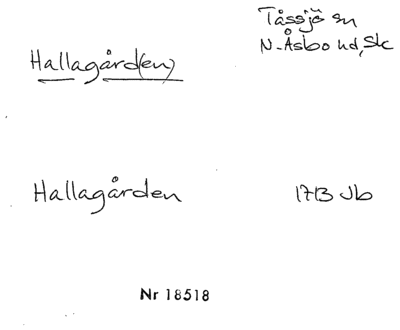 Tåssjö sn
Hallagård(en)
N-Åsbo hd, Sk
Hallagården 1713 Jb
Nr 18518